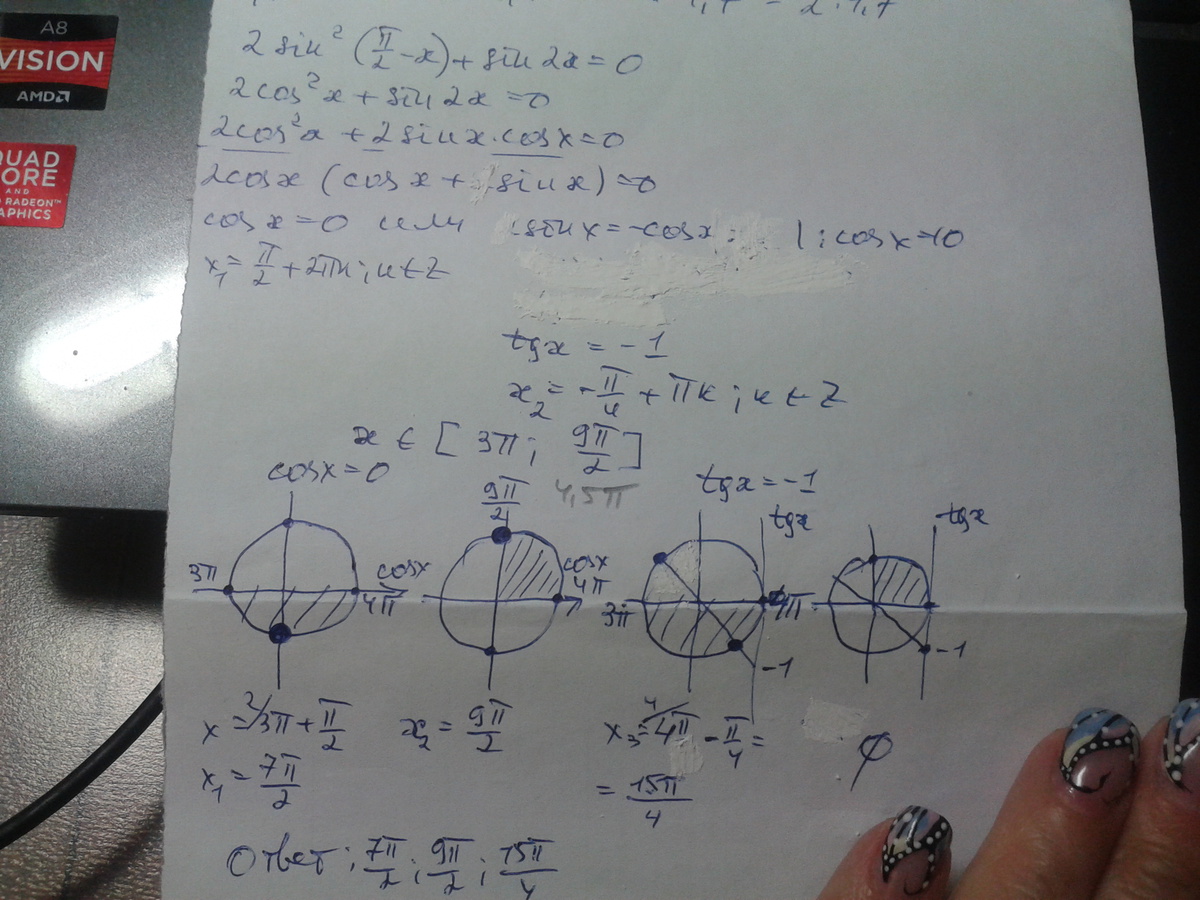 A8
VISION
AMD
QUAD
CORE
AND
RADEON™
GRAPHICS
2 sin² (π/2 - x) + sin 2x = 0
2cos²x + sin 2x = 0
2cos²x + 2 sin x · cos x = 0
2cos x (cos x + sin x) = 0
cos x = 0 или sin x = -cos x | : cos x ≠ 0
x₁ = π/2 + 2πn; n ∈ Z
tg x = -1
x₂ = -π/4 + πk; k ∈ Z
x ∈ [3π; 9π/2]
4,5π
cos x = 0
3π
cos x
4π
9π/2
cos x
4π
tg x = -1
tg x
3π
4π
-1
tg x
-1
x = 3π + π/2
x₁ = 7π/2
x₂ = 9π/2
x₃ = 4π - π/4 =
= 15π/4
∅
Ответ: 7π/2; 9π/2; 15π/4